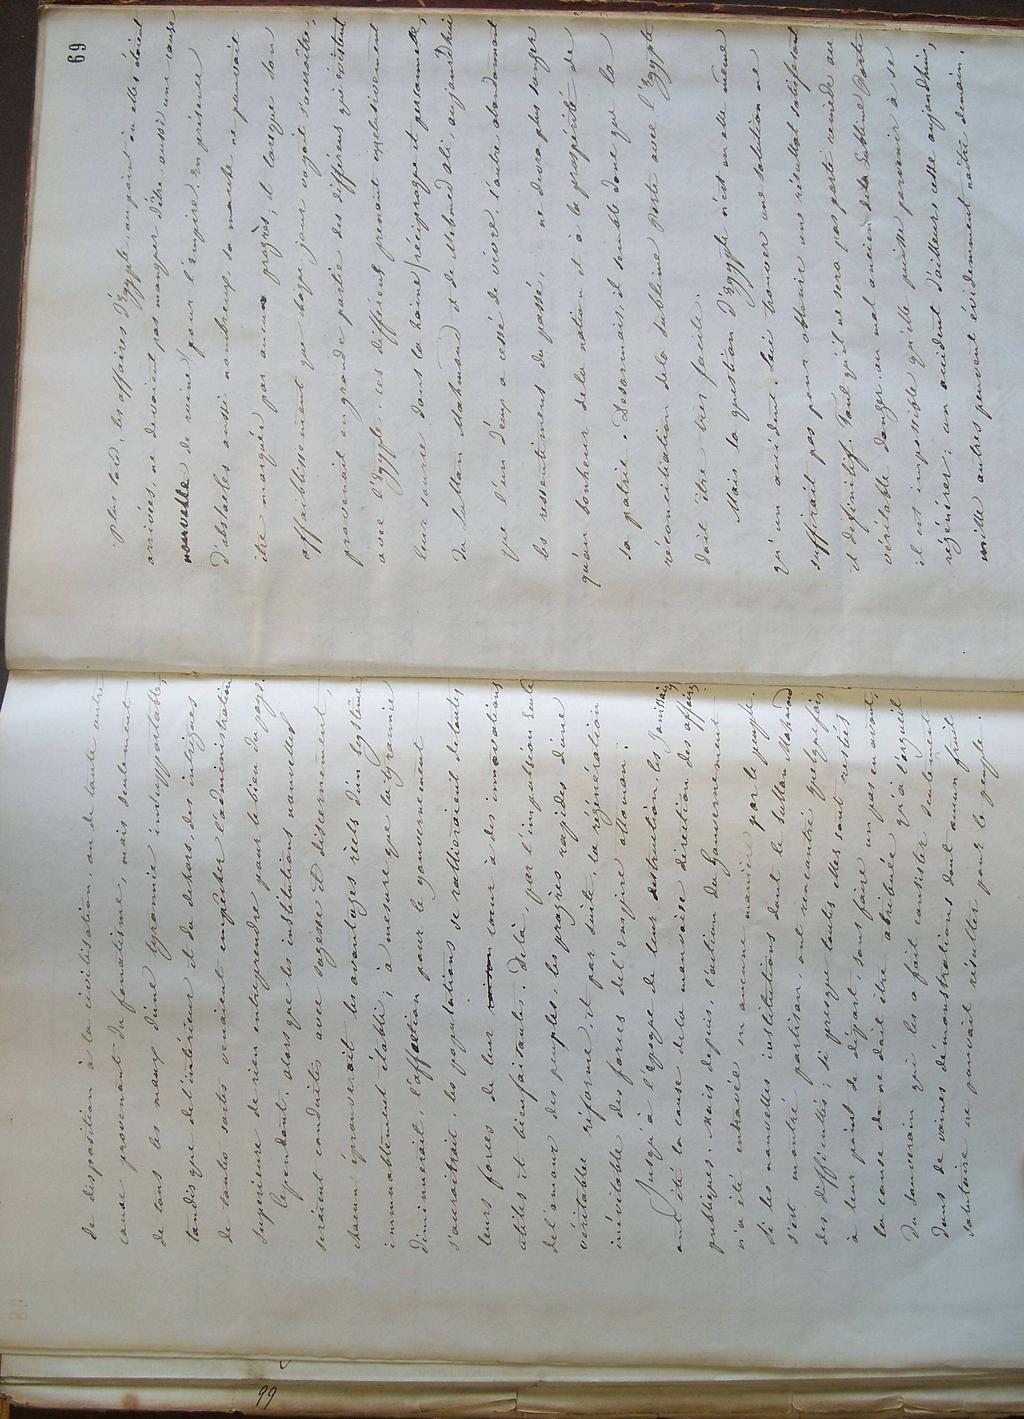 de disposition à la civilisation, ou de toute autre
cause provenant du fanatisme, mais seulement
de tous les maux d'une tyrannie insupportable,
tandis que de l'intérieur et du dehors, des intrigues
de toutes sortes venaient empêcher l'administration
supérieure de rien entreprendre pour le bien du pays.
Cependant, alors que les institutions nouvelles
seraient conduites avec sagesse et discernement,
chacun éprouverait les avantages réels d'un système
immuablement établi; à mesure que la tyrannie
diminuerait, l'affection pour le gouvernement
s'accroîtrait, les populations se rallieraient de toutes
leurs forces de leur cœur à des innovations
utiles et bienfaisantes. De là, par l'impulsion seule
de l'amour des peuples, les progrès rapides d'une
véritable réforme, et par suite, la régénération
inévitable des forces de l'Empire ottoman.
Jusqu'à l'époque de leur destruction, les Janissaires
ont été la cause de la mauvaise direction des affaires
publiques. Mais depuis, l'action du Gouvernement
n'a été entravée en aucune manière par le peuple.
Si les nouvelles institutions dont le Sultan Mahmoud
s'est montré partisan, ont rencontré quelquefois
des difficultés; si presque toutes elles sont restées
à leur point de départ, sans faire un pas en avant,
la cause de ne doit être attribuée qu'à l'orgueil
du Souverain qui les a fait consister seulement
dans de vaines démonstrations dont aucun fruit
salutaire ne pouvait résulter pour le peuple.
99
69
plus tard, les affaires d'Égypte, au point où elles étaient
arrivées, ne devaient pas manquer d'être aussi une cause
nouvelle de ruine pour l'Empire. En présence
d'obstacles aussi nombreux, sa marche ne pouvait
être marquée par aucun progrès; et lorsque son
affaiblissement que chaque jour voyait s'accroître,
provenait en grande partie des différens qui existaient
avec l'Égypte, ces différens prenaient exclusivement
leur source dans la haine réciproque et personnelle
du Sultan Mahmoud et de Mehmed Ali; aujourd'hui
que l'un d'eux a cessé de vivre, l'autre abandonnant
les ressentimens du passé, ne devra plus songer
qu'au bonheur de la nation et à la prospérité de
la patrie. Désormais, il semble donc que la
réconciliation de la Sublime Porte avec l'Égypte
doit être très facile.
Mais la question d'Égypte n'est en elle même
qu'un accident; lui trouver une solution ne
suffirait pas pour obtenir un résultat satisfaisant
et définitif. Tant qu'il ne sera pas porté remède au
véritable danger, au mal ancien de la Sublime Porte
il est impossible qu'elle puisse parvenir à se
régénérer; un accident d'ailleurs cesse aujourd'hui,
mille autres peuvent évidemment naître demain.